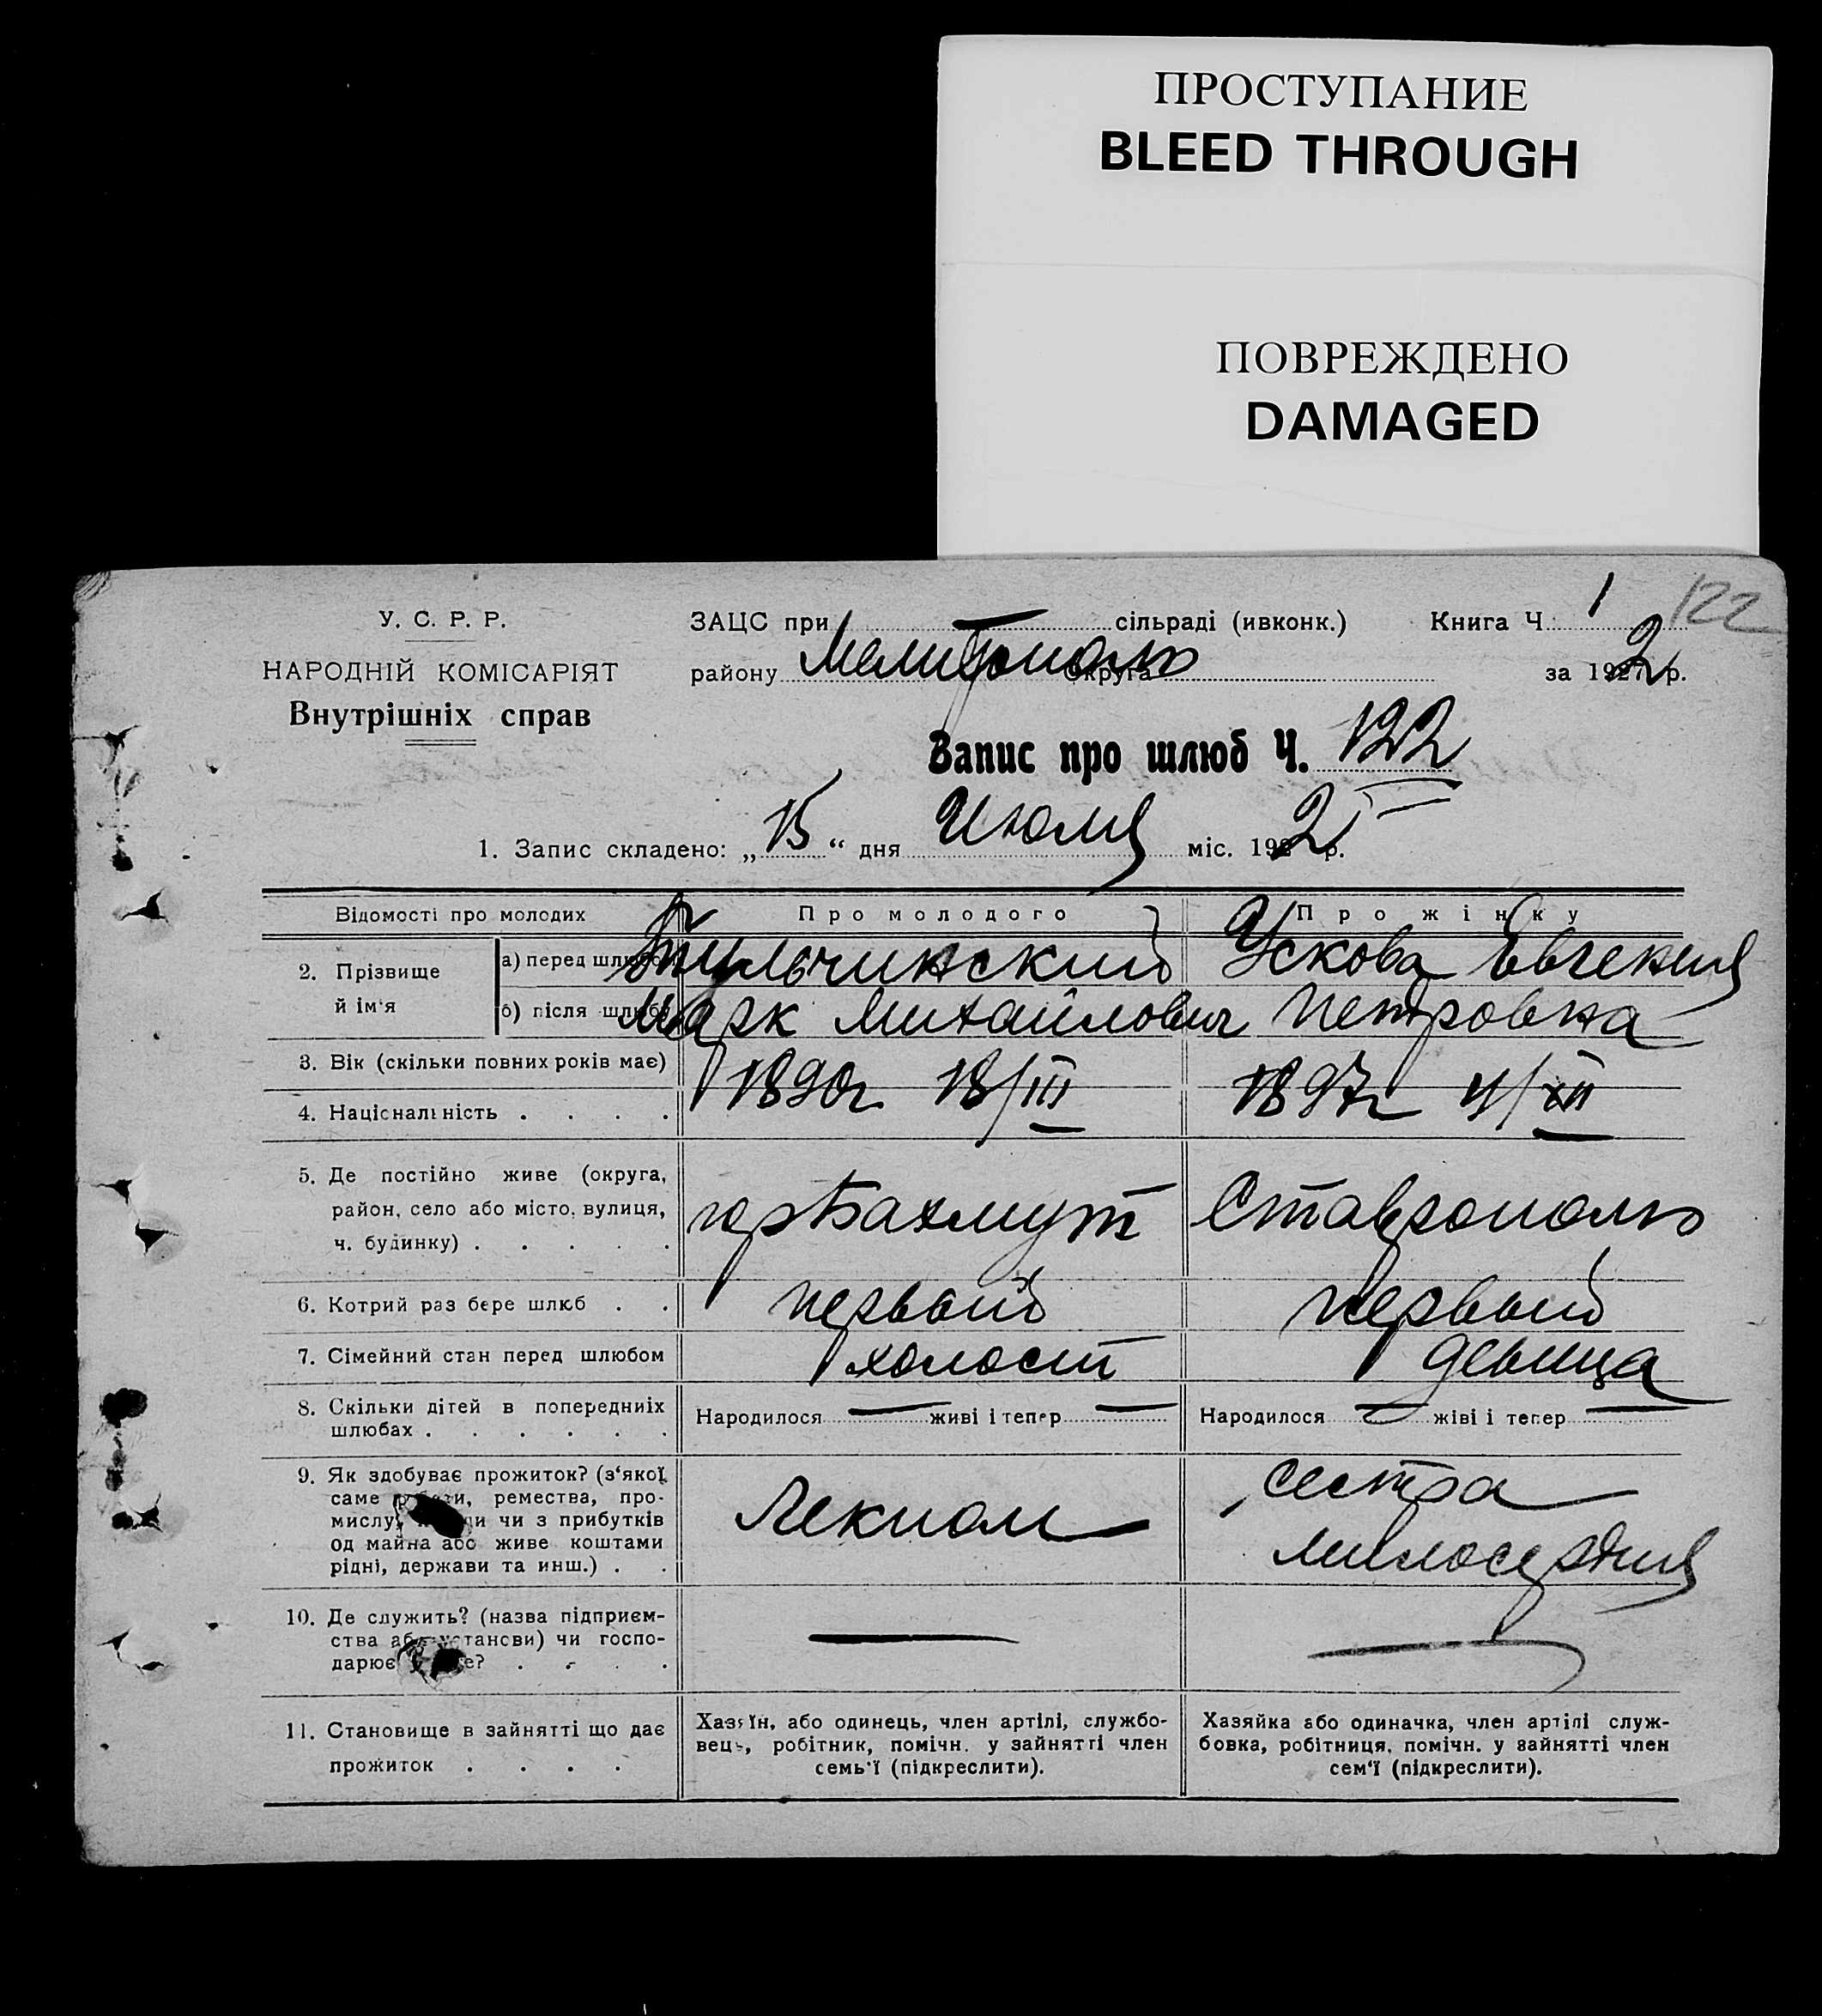 ПРОСТУПАНИЕ
BLEED THROUGH
ПОВРЕЖДЕНО
DAMAGED
122
У. С. Р. Р.
НАРОДНІЙ КОМІСАРІЯТ
Внутрішніх справ
ЗАЦС при — сільраді (ивконк.) Книга Ч. 1
району Мелитополь Округа за 1922 р.
Запис про шлюб Ч. 122
1. Запис складено: „ 15 “ дня Июля міс. 1922 р.
Відомості про молодих Про молодого Про жінку
2. Прізвище й ім'я
а) перед шлюбом Тульчинский Ускова Евгения
б) після шлюбу Марк Михайлович Петровна
3. Вік (скільки повних років має) 1890г 18/III 1897г
4. Національність . . . .
5. Де постійно живе (округа,
район, село або місто, вулиця,
ч. будинку) . . . . .
гор Бахмут Ставрополь
6. Котрий раз бере шлюб . . первый первый
7. Сімейний стан перед шлюбом холост девица
8. Скільки дітей в попередниіх
шлюбах . . . . . .
Народилося — живі і тепер — Народилося — жіві і тепер —
9. Як здобуває прожиток? (з'якої
саме ремества, про-
мислу, чи з прибутків
од майна або живе коштами
рідні, держави та инш.) . .
Лекпом сестра
милосердия
10. Де служить? (назва підприєм-
ства або установи) чи госпо-
дарює . . . .
— —
11. Становище в зайнятті що дає
прожиток . . . .
Хазяїн, або одинець, член артілі, службо-
вець, робітник, помічн. у зайнятті член
семь'ї (підкреслити).
Хазяйка або одиначка, член артілі служ-
бовка, робітниця, помічн. у зайнятті член
сем'ї (підкреслити).